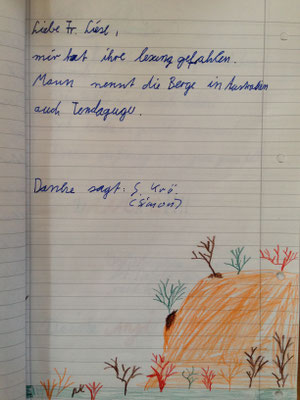 Liebe Fr. Liese,
mir hat ihre lesung gefahlen.
Mann nennt die Berge in Australien
auch Tendagugu.
Danke sagt: S. Krö.
(Simon)